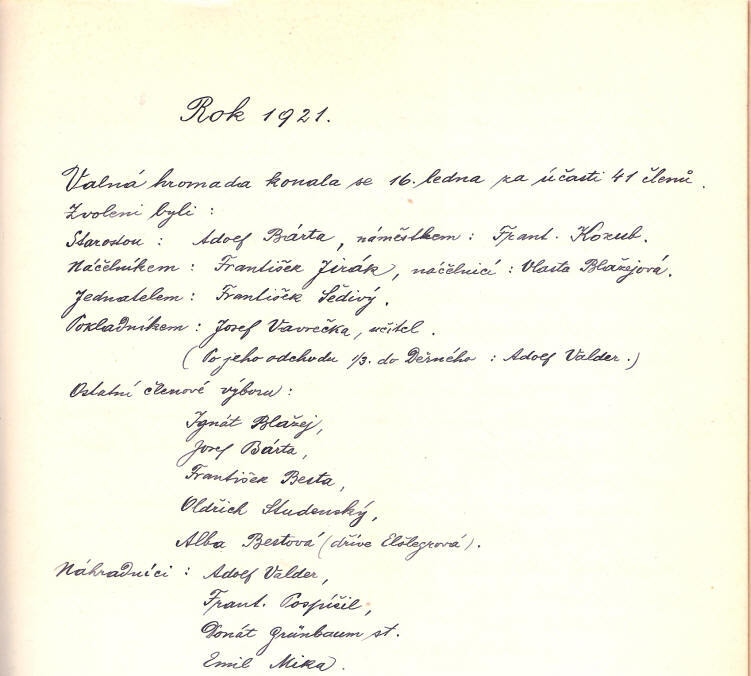 Rok 1921.
Valná hromada konala se 16. ledna za účasti 41 členů.
Zvoleni byli :
Starostou : Adolf Bárta, náměstkem : Frant. Kozub.
Náčelníkem : František Jirák, náčelnicí : Vlasta Blažejová.
Jednatelem : František Šedivý.
Pokladníkem : Josef Vavrečka, učitel.
(Po jeho odchodu 1/3. do Děrného : Adolf Valder.)
Ostatní členové výboru :
Ignát Blažej,
Josef Bárta,
František Besta,
Oldřich Studenský,
Alba Bestová (dříve Elšlegrová).
Náhradníci : Adolf Valder,
Frant. Pospíšil,
Donát Grünbaum st.
Emil Mika.